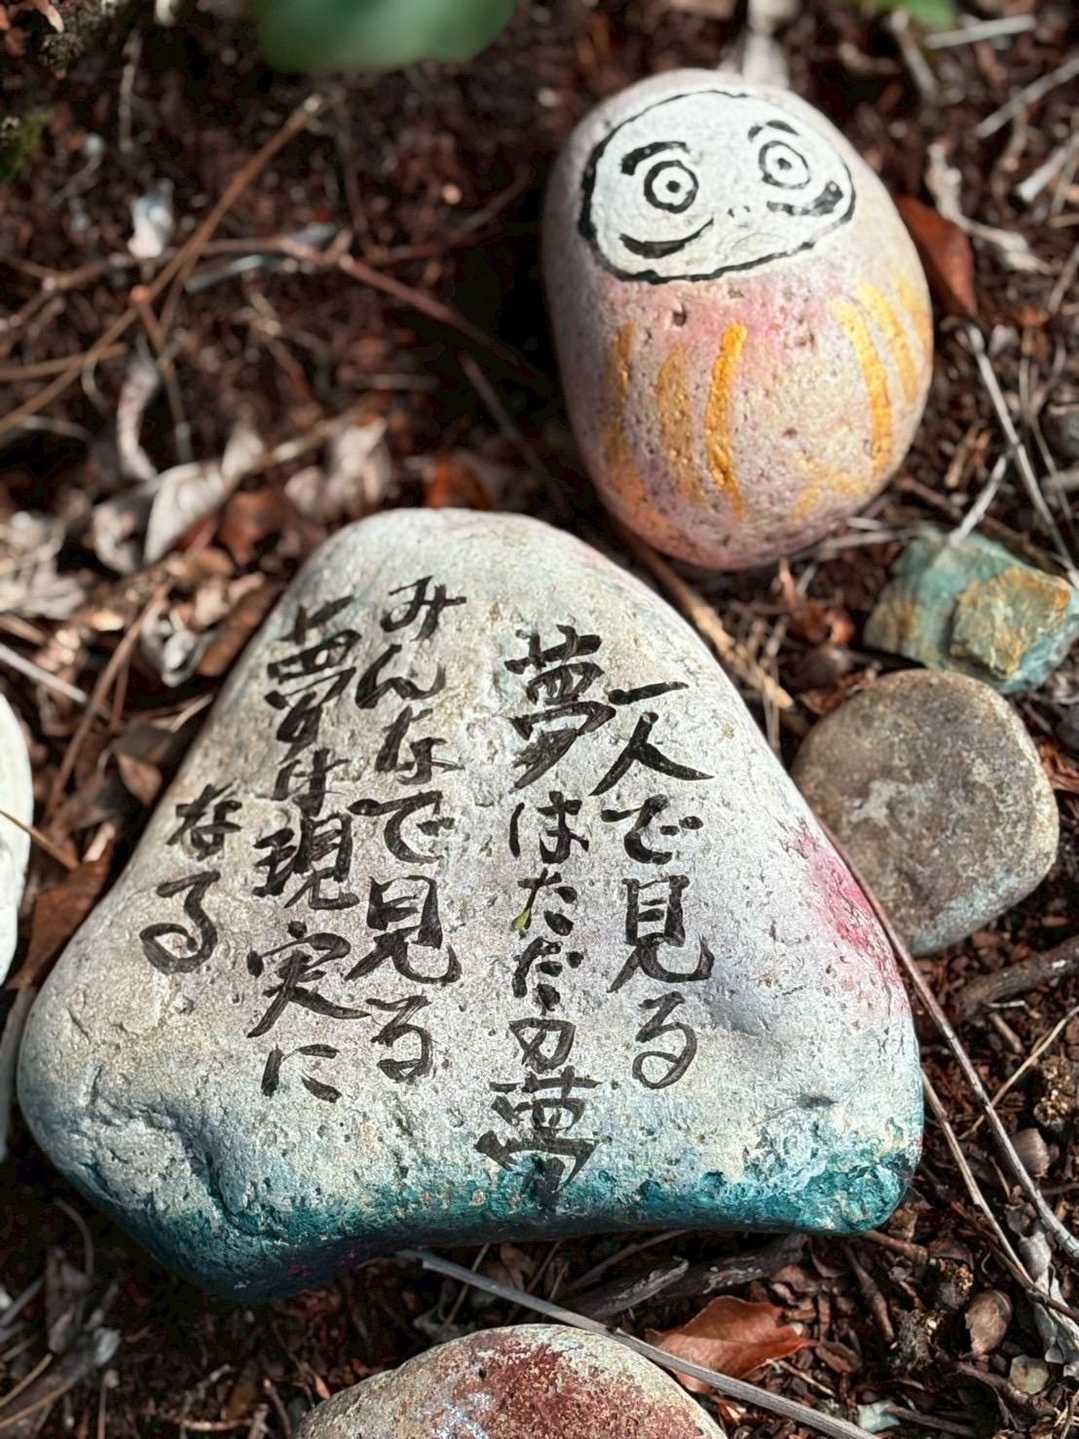 一人で見る
夢はただの夢
みんなで見る
夢は現実に
なる